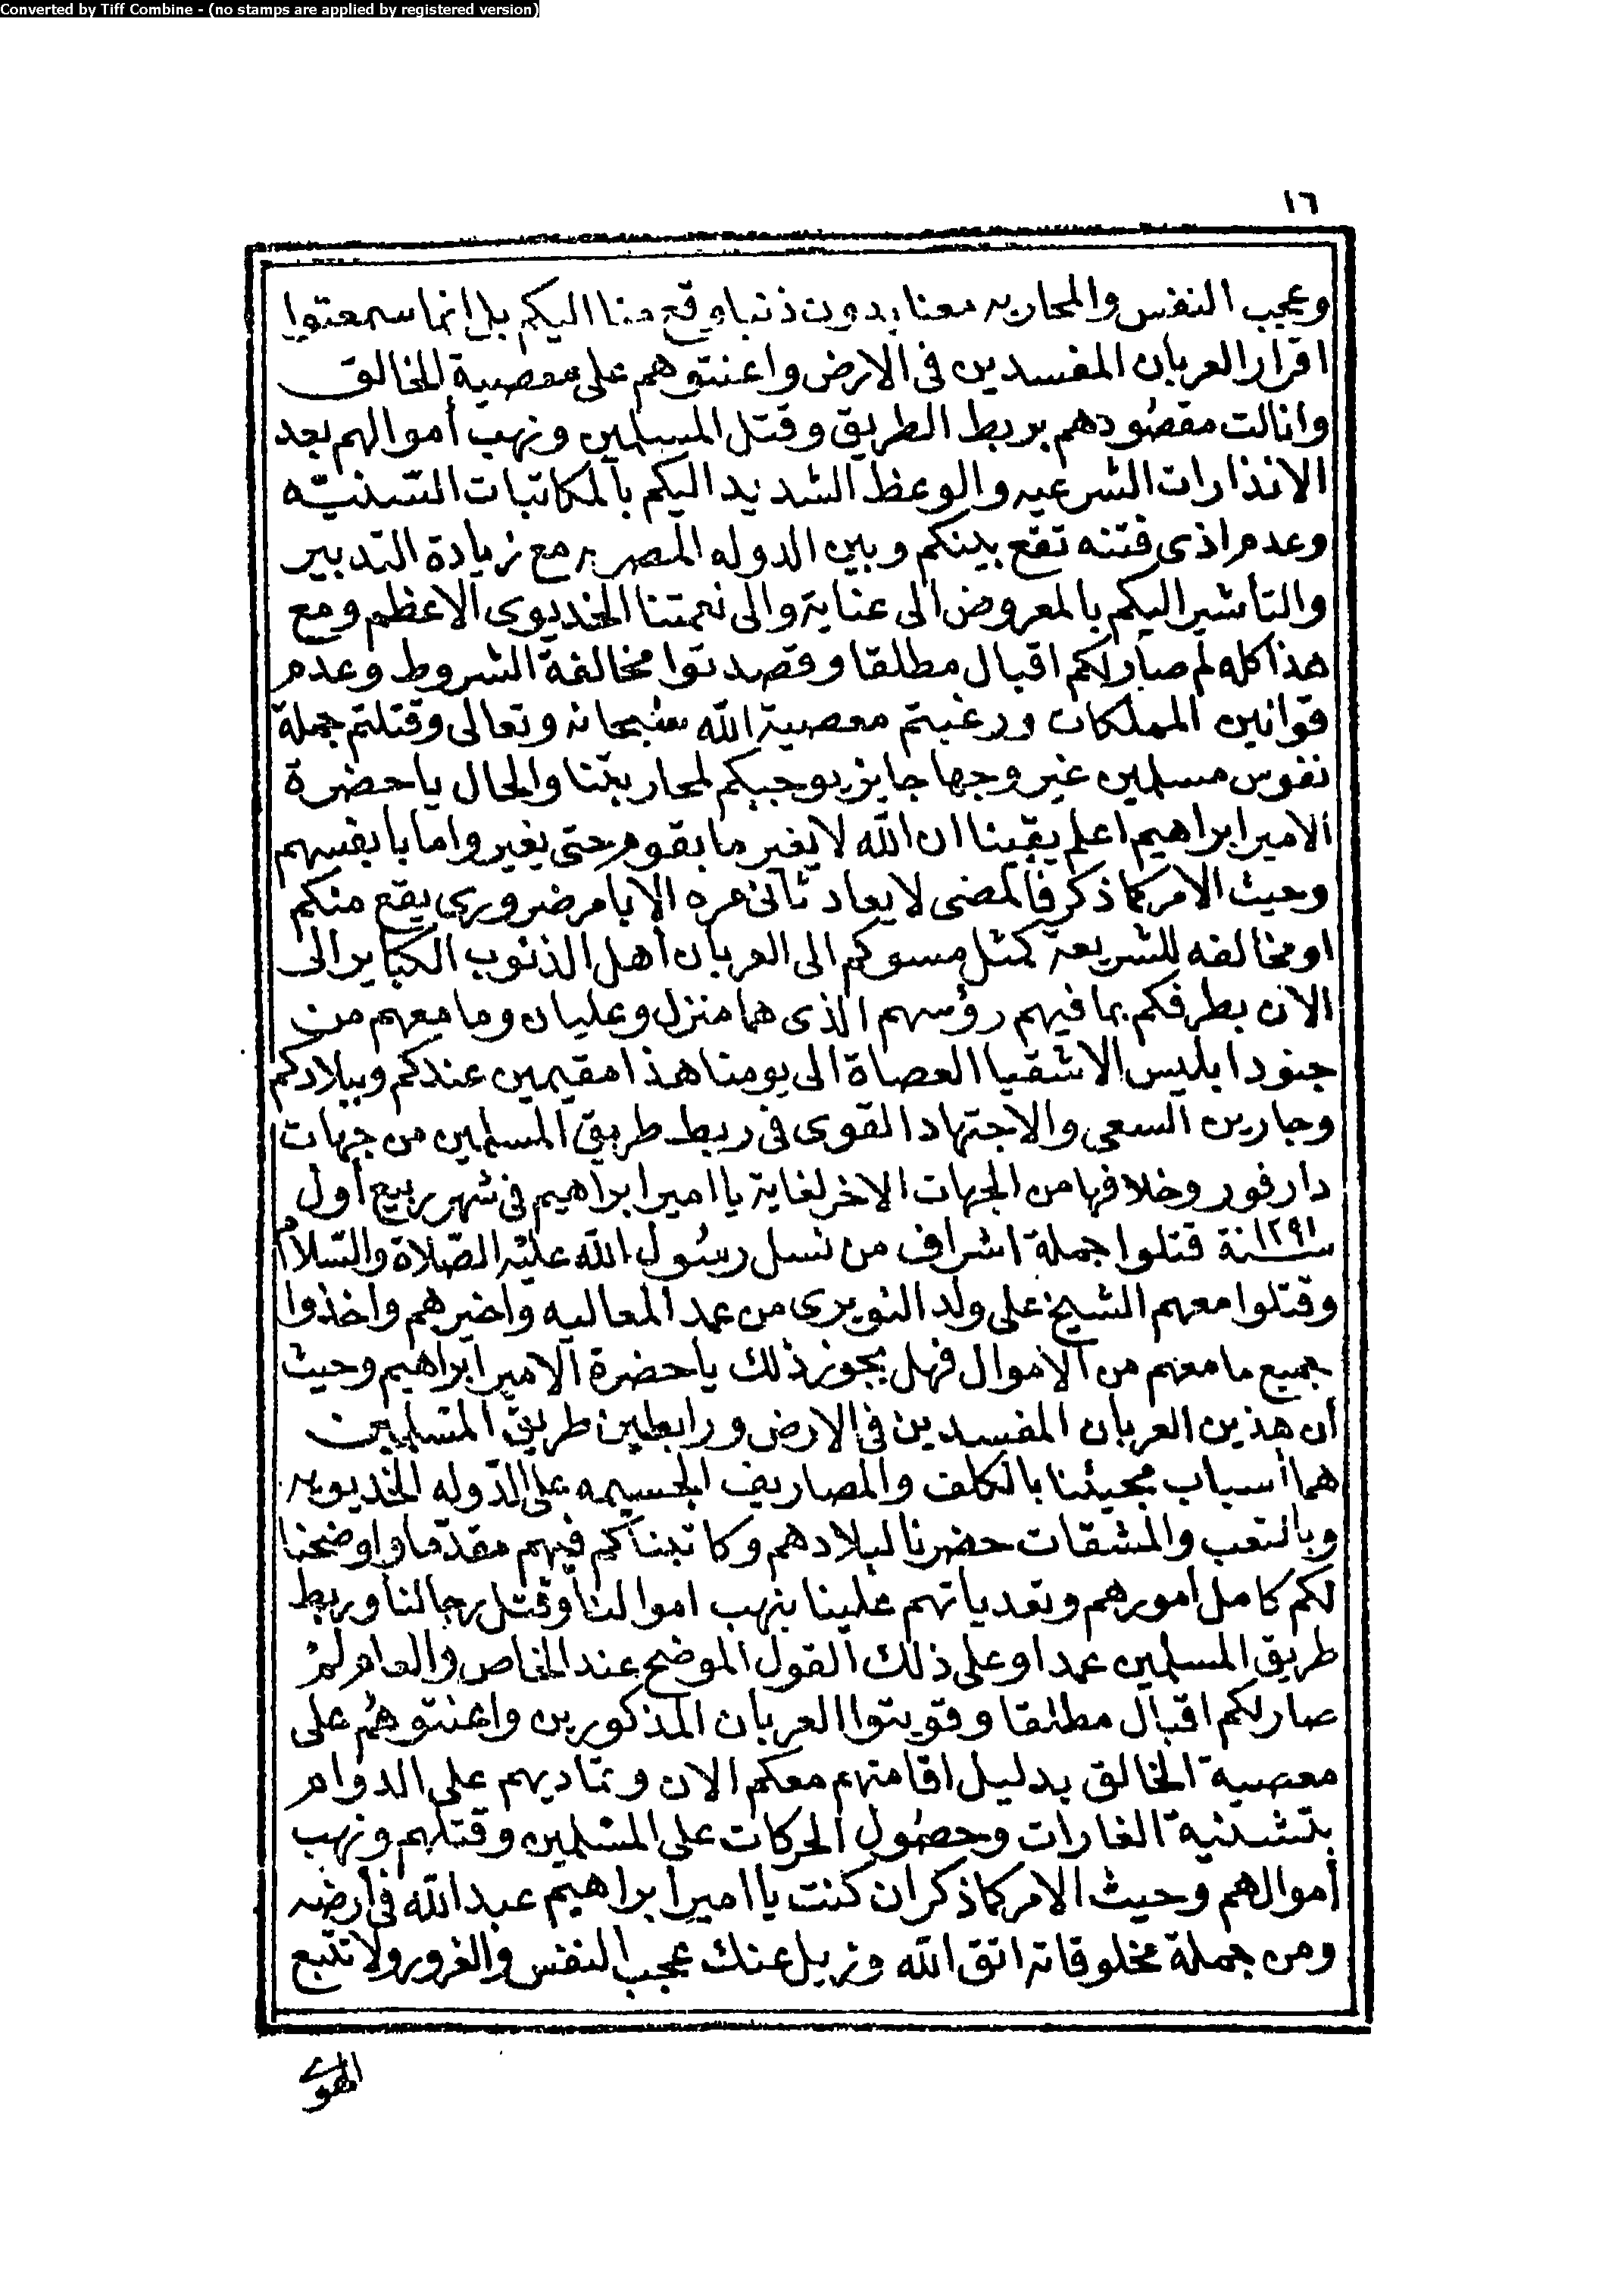 Converted by Tiff Combine - (no stamps are applied by registered version)
١٦
وعجب النفس والمحاربه معنا بدون ذنبا وقع منا اليكم بل إنما سمعتوا
اقرار العربان المفسدين فى الارض واعنتوهم على معصية الخالق
وانالت مقصُودهم بربط الطريق وقتل المسلمين ونهب أموالهم بعد
الانذارات الشرعيه والوعظ الشديد اليكم بالمكاتبات السّنيّه
وعدم اذى فتنه تقع بينكم وبين الدوله المصريه مع زيادة التدبير
والتأشير اليكم بالمعروض الى عناية والى نعمتنا الخديوى الاعظم ومع
هذا كله لم صار لكم اقبال مطلقا وقصدتوا مخالفة الشروط وعدم
قوانين المملكات ورغبتم معصية الله سُبحانه وتعالى وقتلتم جملة
نفوس مسلمين غير وجها جايز يوجبكم لمحاربتنا والحال ياحضرة
الامير ابراهيم اعلم يقينا ان الله لايغير ما بقوم حتى يغيروا ما بأنفسهم
وحيث الامر كما ذكر فالمضى لايعاد ثانى مره الايام ضرورى يقع منكم
او مخالفه للشريعة كمثل مسوكم الى العربان أهل الذنوب الكباير الى
الان بطرفكم بما فيهم رؤسهم الذى هما منزل وعليان وما معهم من
جنود ابليس الاشقيا العصاة الى يومنا هذا مقيمين عندكم وببلادكم
وجارين السعى والاجتهاد القوى فى ربط طريق المسلمين من جهات
دارفور وخلافها من الجهات الاخر لغاية يا امير ابراهيم فى شهر ربيع أول
سنة ١٢٩١ قتلوا جملة اشراف من نسل رسُول الله عليْه الصّلاة والسّلامُ
وقتلوا معهم الشيخ على ولد النويرى من عمد المعاليه واضرهم واخذوا
جميع ما معهم من الاموال فهل يجوز ذلك ياحضرة الامير ابراهيم وحيث
أن هذين العربان المفسدين فى الارض ورابطين طريق المسلمين
هما أسباب مجيئنا بالكلف والمصاريف الجسيمه على الدّوله الخديويه
وبالتعب والمشقات حضرنا لبلادهم وكاتبناكم فيهم مقدّما واوضحنا
لكم كامل امورهم وتعدياتهم علينا بنهب اموالنا وقتل رجالنا وربط
طريق المسلمين عمدا وعلى ذلك القول الموضح عند الخاص والعام لمْ
صار لكم اقبال مطلقا وقويتوا العربان المذكورين واعنتوهُم على
معصية الخالق بدليل اقامتهم معكم الان وتماديهم على الدوام
بتشنية الغارات وحصُول الحركات على المسلمين وقتلهم ونهب
أموالهم وحيث الامر كما ذكر ان كنت يا امير ابراهيم عبد الله فى أرضه
ومن جملة مخلوقاته اتق الله وزيل عنك عجب النفس والغرور ولا تتّبع
الهوى